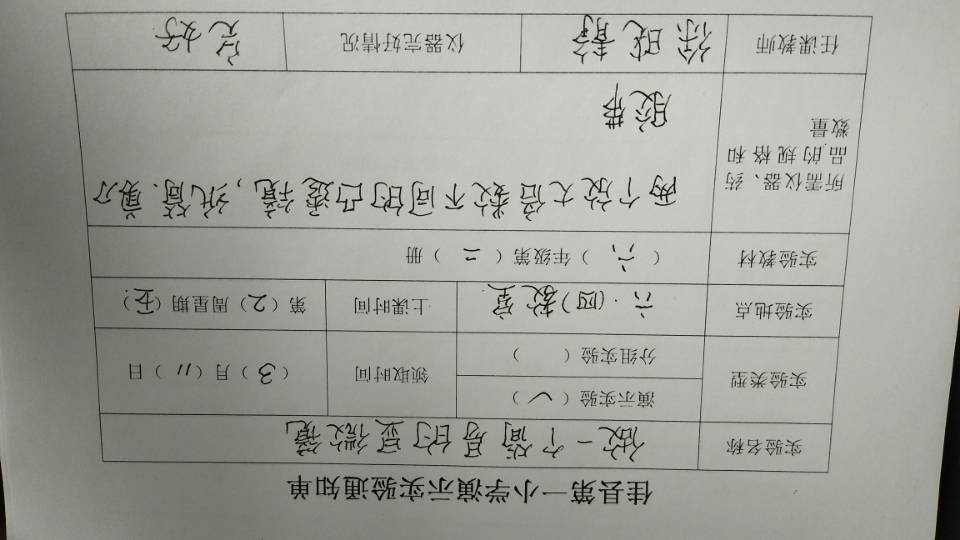 佳县第一小学演示实验通知单
实验名称 做一个简易的显微镜
实验类型 演示实验（✓） 领取时间 （3）月（11）日
分组实验（ ）
实验地点 六·(四)教室 上课时间 第（2）周星期（五）
实验教材 （六）年级第（二）册
所需仪器、药品的规格和数量 两个放大倍数不同的凸透镜，纸筒.剪刀
胶带
任课教师 仪器完好情况 完好